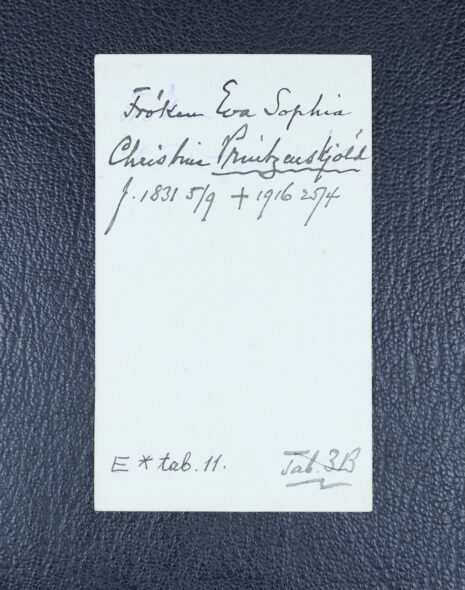 Fröken Eva Sophia
Christine Printzenskjöld
f. 1831 5/9 + 1916 25/4
E * tab. 11.
Tab. 3B